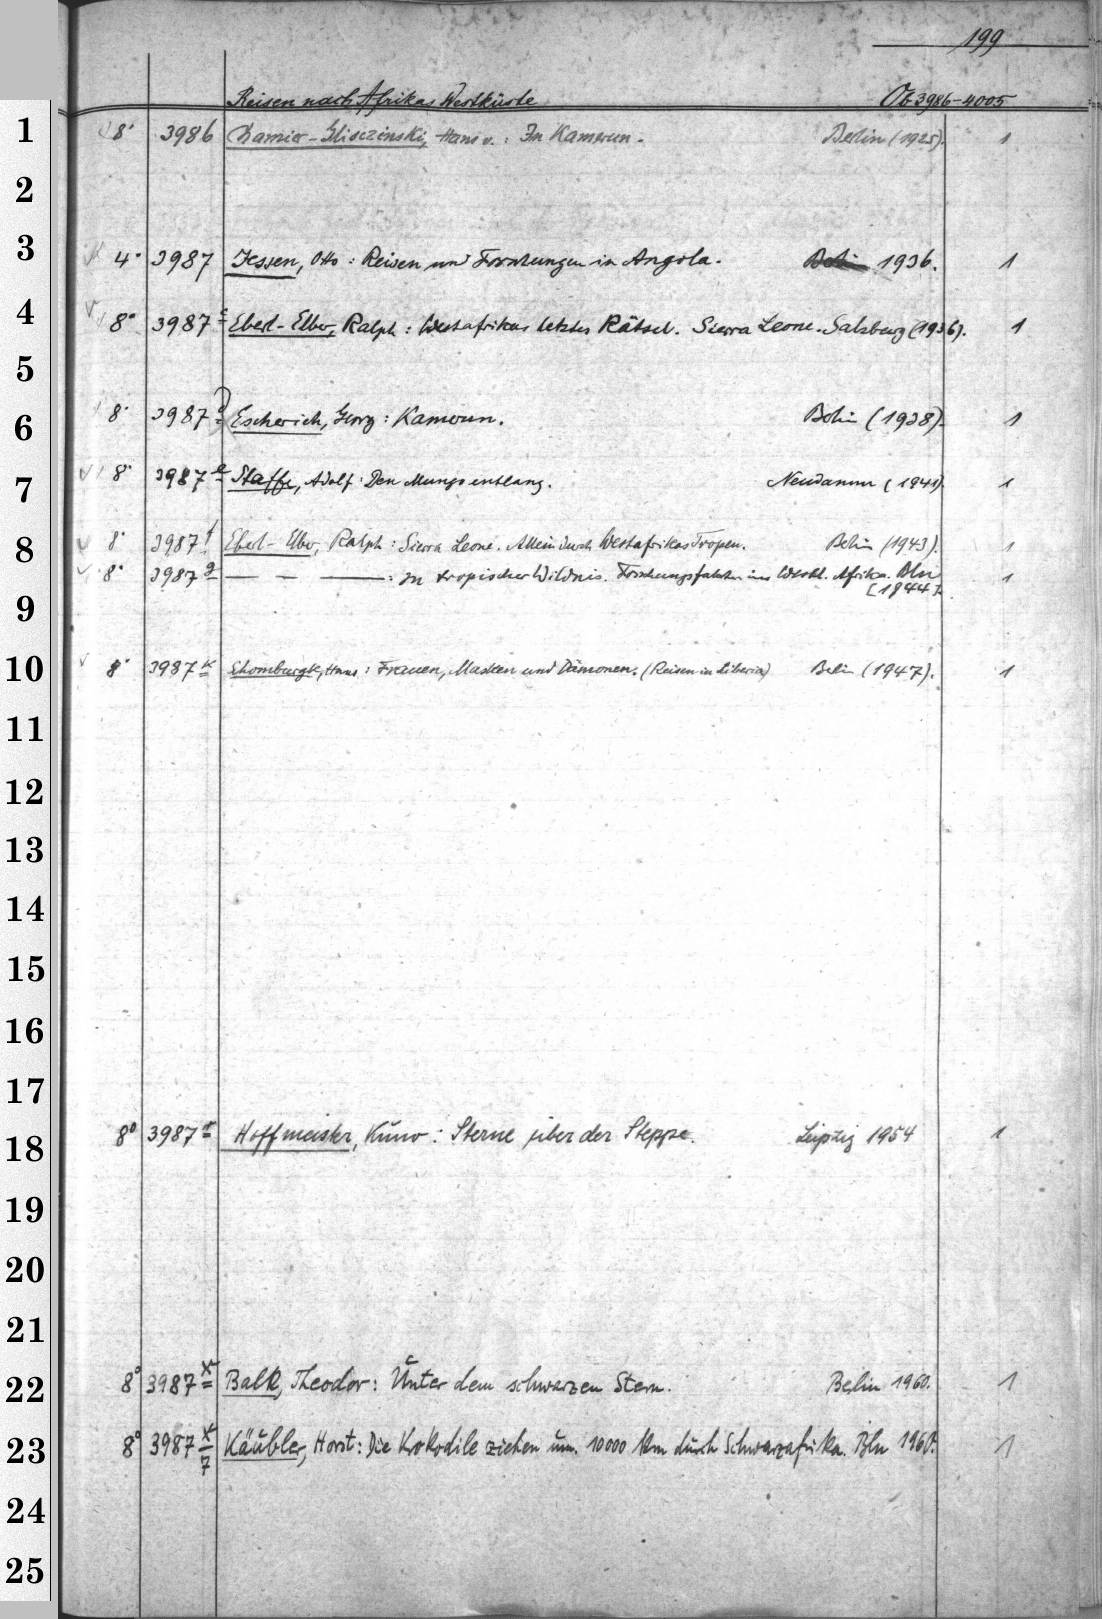 199
Reisen nach Afrikas Westküste Ob 3986-4005
1 8° 3986 Chamier-Glisczinski, Hans v.: In Kamerun. Berlin (1925). 1
2
3 4° 3987 Jessen, Otto: Reisen und Forschungen in Angola. Berlin 1936. 1
4 8° 3987 c Eberl-Elber, Ralph: Westafrikas letztes Rätsel. Sierra Leone. Salzburg (1936). 1
5
6 8° 3987 Escherich, Georg: Kamerun. Berlin (1938). 1
7 8° 3987 e Staffe, Adolf: Den Mungo entlang. Neudamm (1941). 1
8 8° 3987 f Eberl-Elber, Ralph: Sierra Leone. Allein durch Westafrikas Tropen. Berlin (1943). 1
8° 3987 g — — —: In tropischer Wildnis. Forschungsfahrten ins Westl. Afrika. Bln 1
9 [1944].
10 8° 3987 k Schomburgk, Hans: Frauen, Masken und Dämonen. (Reisen in Liberia) Berlin (1947). 1
11
12
13
14
15
16
17
18 8° 3987 r Hoffmeister, Kuno: Sterne über der Steppe. Leipzig 1954 1
19
20
21
22 8° 3987 x Balk, Theodor: Unter dem schwarzen Stern. Berlin 1960. 1
23 8° 3987 x 7 Käubler, Horst: Die Krokodile ziehen um. 10000 km durch Schwarzafrika. Bln 1960. 1
24
25